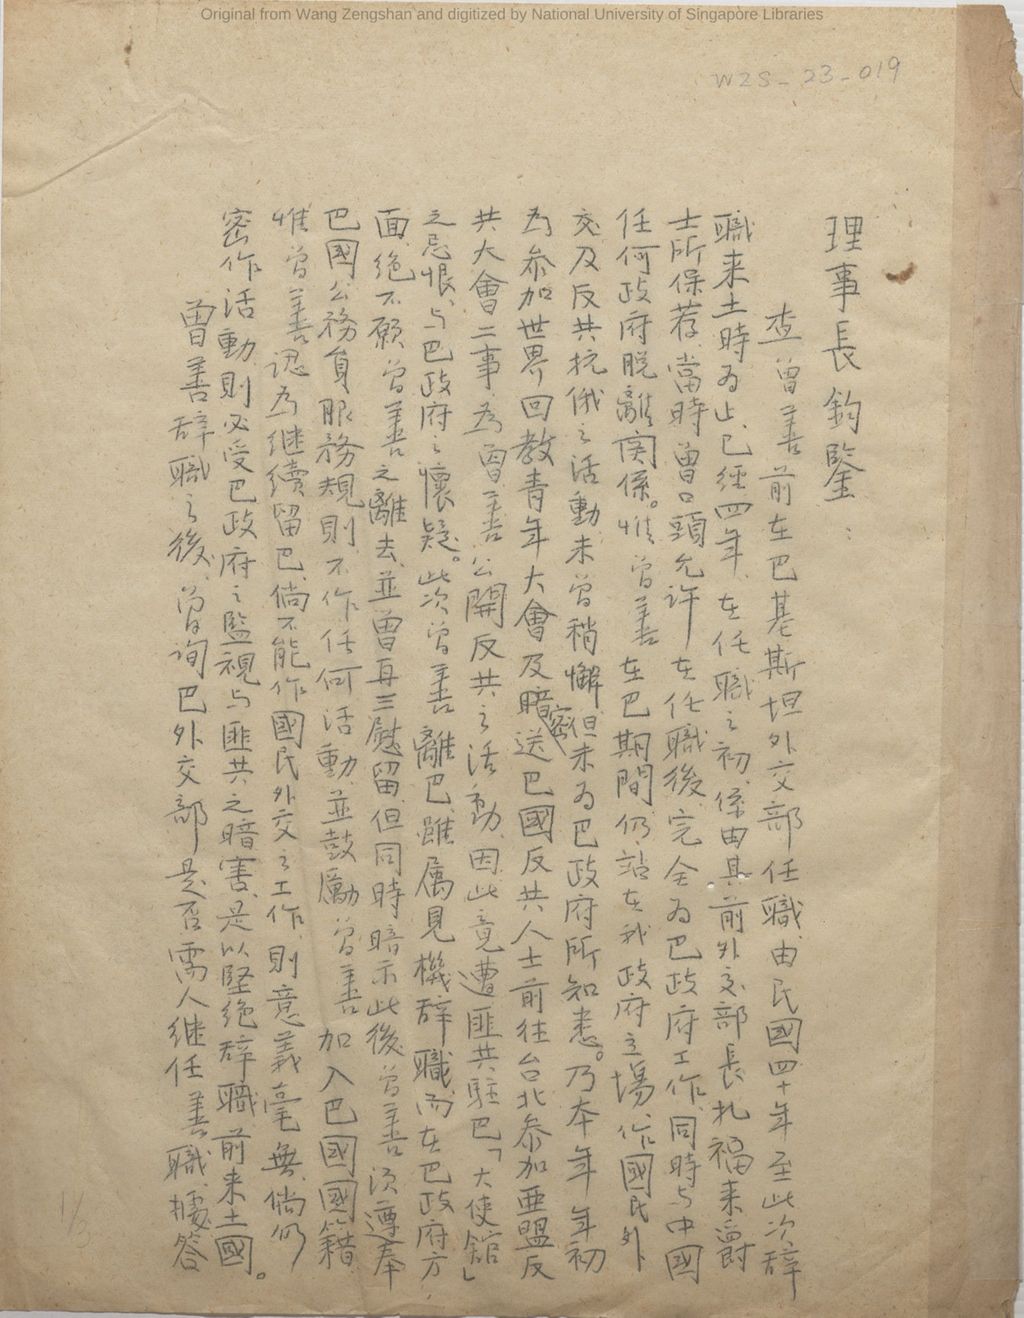 Original from Wang Zengshan and digitized by National University of Singapore Libraries
WZS-23-019
理事長鈞鑒：
查曾善前在巴基斯坦外交部任職由民國四十年至此次辞
職来土時为止、已經四年、在任職之初、係由其前外交部長扎福来爵
士所保荐、當時曾口頭允許在任職後、完全为巴政府工作、同時与中國
任何政府脱離関係。惟曾善在巴期間、仍站在我政府立場、作國民外
交及反共抗俄之活動未曾稍懈、但未为巴政府所知悉。乃本年年初
為参加世界回教青年大會及暗密送巴國反共人士前往台北参加亜盟反
共大會二事、為曾善公開反共之活動、因此竟遭匪共駐巴「大使舘」
之忌恨、与巴政府之懷疑。此次曾善離巴、雖属見機辞職、而在巴政府方
面、絶不願曾善之離去、並曾再三慰留、但同時暗示此後曾善須遵奉
巴國公務員服務規則、不作任何活動、並鼓勵曾善加入巴國國籍、
惟曾善認為継續留巴、倘不能作國民外交之工作、則意義毫無、倘仍
密作活動、則必受巴政府之監視与匪共之暗害、是以堅絶辞職、前来土國。
曾善辞職之後、曾询巴外交部是否需人継任善職、據答
1/2